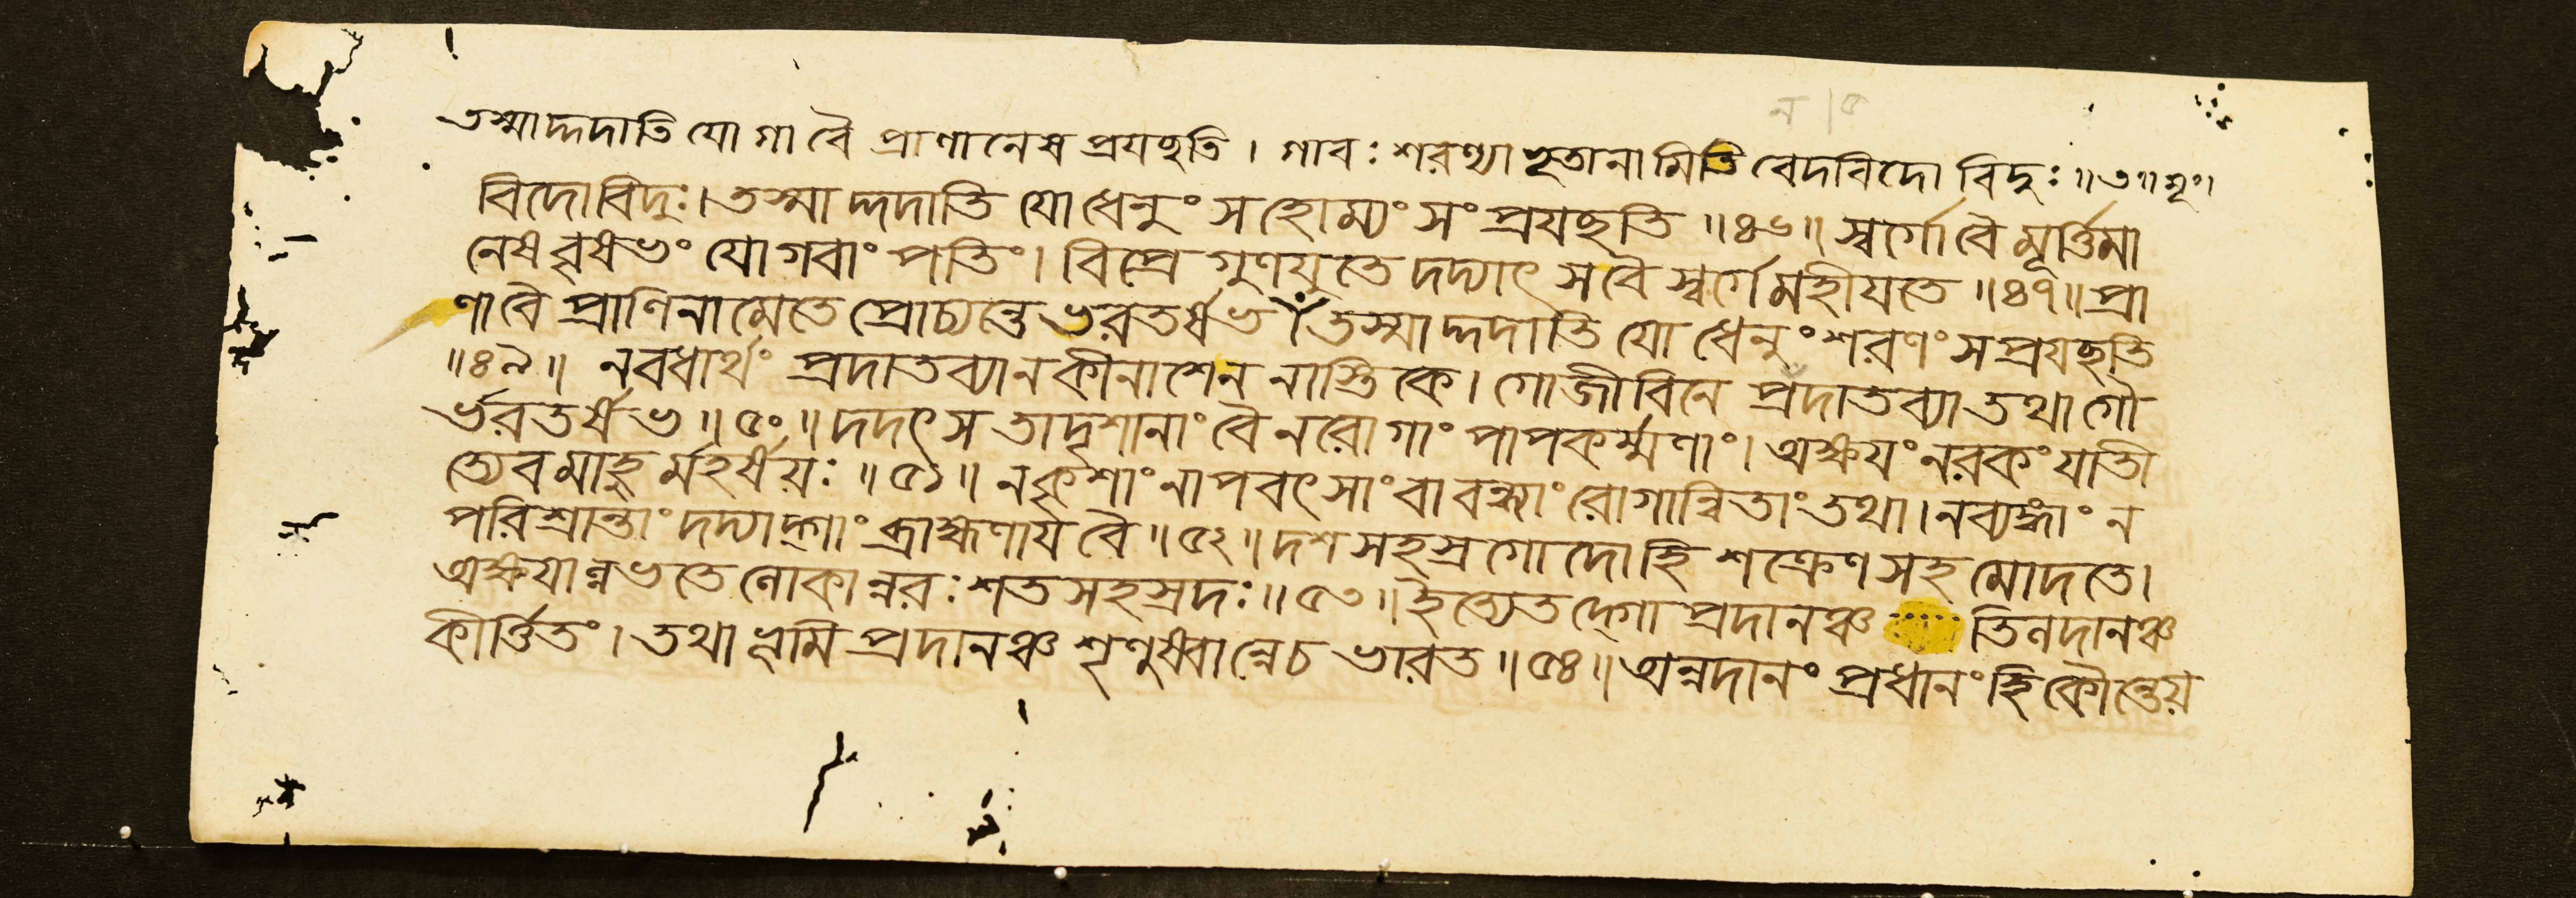 ন/৫
তস্মাদ্দদাতি যো গা বৈ প্রাণানেষ প্রযচ্ছতি । গাবঃ শরণ্যা ভূতানামিতি বেদবিদো বিদুঃ ॥৩॥ মূং।
বিদোবিদুঃ। তস্মাদ্দদাতি যো ধেনুং স হোম্যং সং প্রযচ্ছতি ॥৪৬॥ স্বর্গো বৈ মূর্ত্তিমা
নেষ বৃষভং যো গবাং পতিং। বিপ্রে গুণযুতে দদ্যাৎ স বৈ স্বর্গে মহীযতে ॥৪৭॥ প্রা
ণা বৈ প্রাণিনামেতে প্রোচ্যন্তে ভরতর্ষভ তস্মাদ্দদাতি যো ধেনুং শরণং স প্রযচ্ছতি
॥৪৯॥ ন বধার্থং প্রদাতব্যা ন কীনাশে ন নাস্তিকে। গোজীবিনে প্রদাতব্যা তথা গৌ
র্ভরতর্ষভ ॥৫০॥ দদৎ স তাদৃশানাং বৈ নরো গাং পাপকর্ম্মণাং। অক্ষযং নরকং যাতী
ত্যেবমাহুর্মহর্ষয়ঃ ॥৫১॥ ন কৃশাং নাপবৎসাং বা বন্ধ্যাং রোগান্বিতাং তথা। ন ব্যঙ্গাং ন
পরিশ্রান্তাং দদ্যাদ্গাং ব্রাহ্মণায বৈ ॥৫২॥ দশসহস্রগোদো হি শক্রেণ সহ মোদতে।
অক্ষযান্নভতে নোকান্নরঃ শতসহস্রদঃ ॥৫৩॥ ইত্যেতদ্গোপ্রদানঞ্চ তিলদানঞ্চ
কীর্ত্তিতং। তথা ভূমিপ্রদানঞ্চ শৃণুষ্বান্নে চ ভারত ॥৫৪॥ অন্নদানং প্রধানং হি কৌন্তেয়